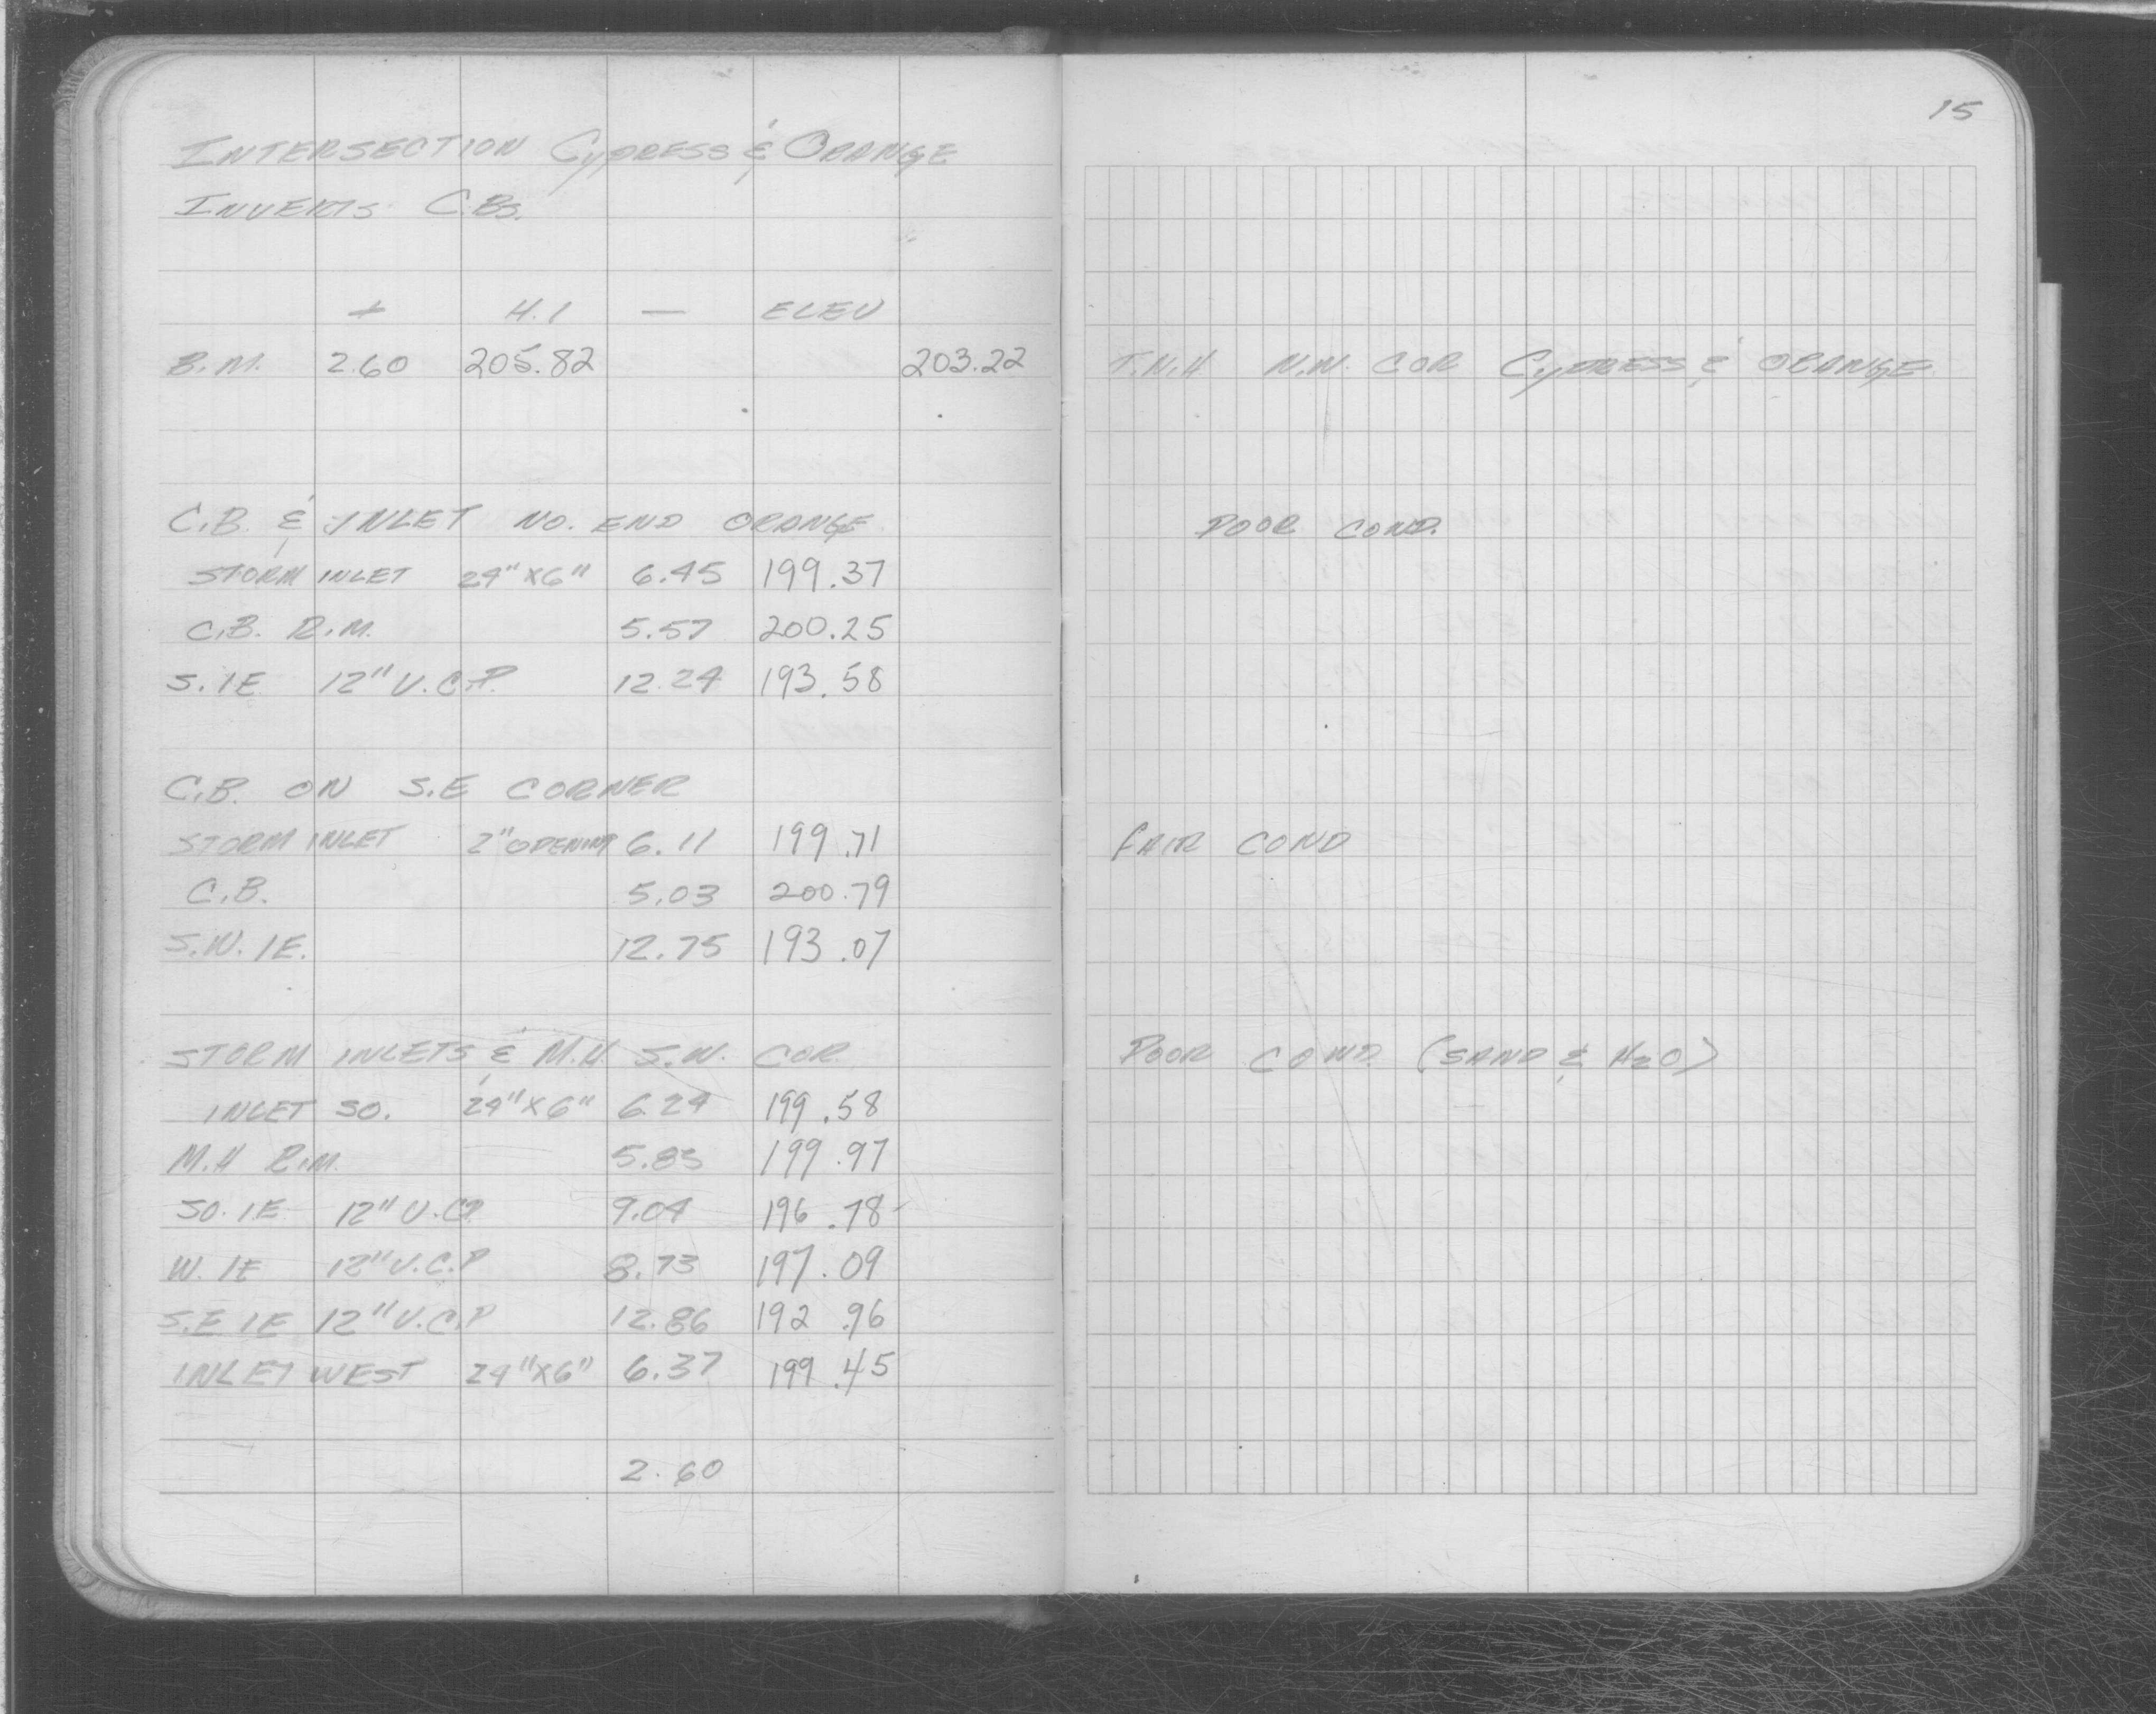 15
INTERSECTION CYPRESS & ORANGE
INVERTS C.Bs.
+ H.I — ELEV
B.M. 2.60 205.82 203.22 T.N.H N.W. COR CYPRESS & ORANGE
C.B. & INLET NO. END ORANGE POOR COND.
STORM INLET 24"X6" 6.45 199.37
C.B. RIM. 5.57 200.25
S. IE 12" V.C.P. 12.24 193.58
C.B. ON S.E CORNER
STORM INLET 2" OPENING 6.11 199.71 FAIR COND
C.B. 5.03 200.79
S.W. IE. 12.75 193.07
STORM INLETS & M.H. S.W. COR. POOR COND. (SAND & H2O)
INLET SO. 24"X6" 6.24 199.58
M.H RIM. 5.85 199.97
SO. IE 12" V.C.P. 9.04 196.78
W. IE 12" V.C.P 8.73 197.09
S.E IE 12" V.C.P 12.86 192.96
INLET WEST 24"X6" 6.37 199.45
2.60